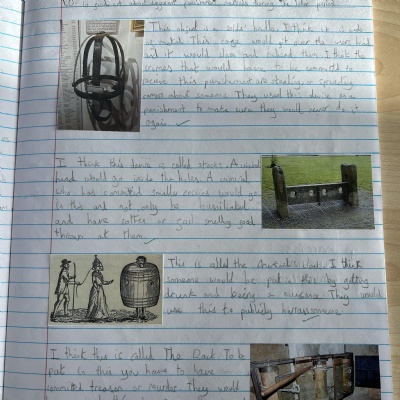 This object is a scolds bridle. I think it is made
of metal. This cage would it over the users head
and it would close and behind this. I think the
crimes that would have to be commited to
receive this punishment are stealing or spreading
rumors about someone. They used this device as a
punishment to make sure they would never do it
again.
I think this device is called stocks. A
hand would go inside the holes. A criminal
who has commited smaller crimes would go
in this and not only be humiliated
and have rotten or foul smelling food
thrown at them.
This is called the drunkards cloak. I think
someone would be put in this by getting
drunk and being a nuisance. They would
use this to publicly harrass someone.
I think this is called The Rack. To be
put in this you have to have
commited treason or murder. They would